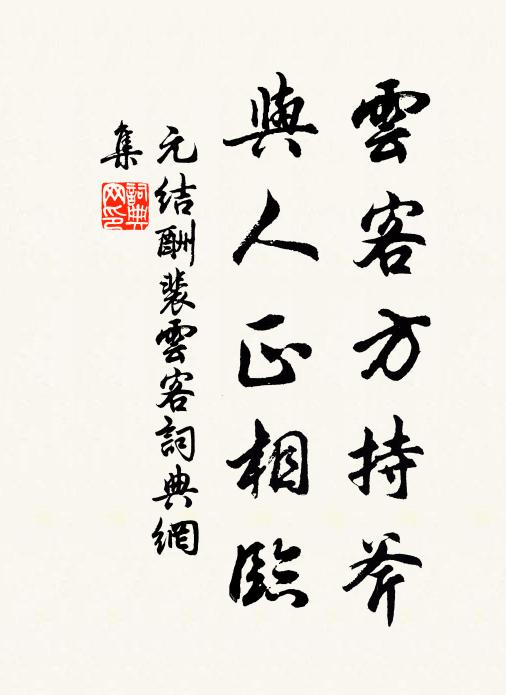 雲客方持斧
與人正相臨
元結酬裴雲客詞典網
集
詞典网印